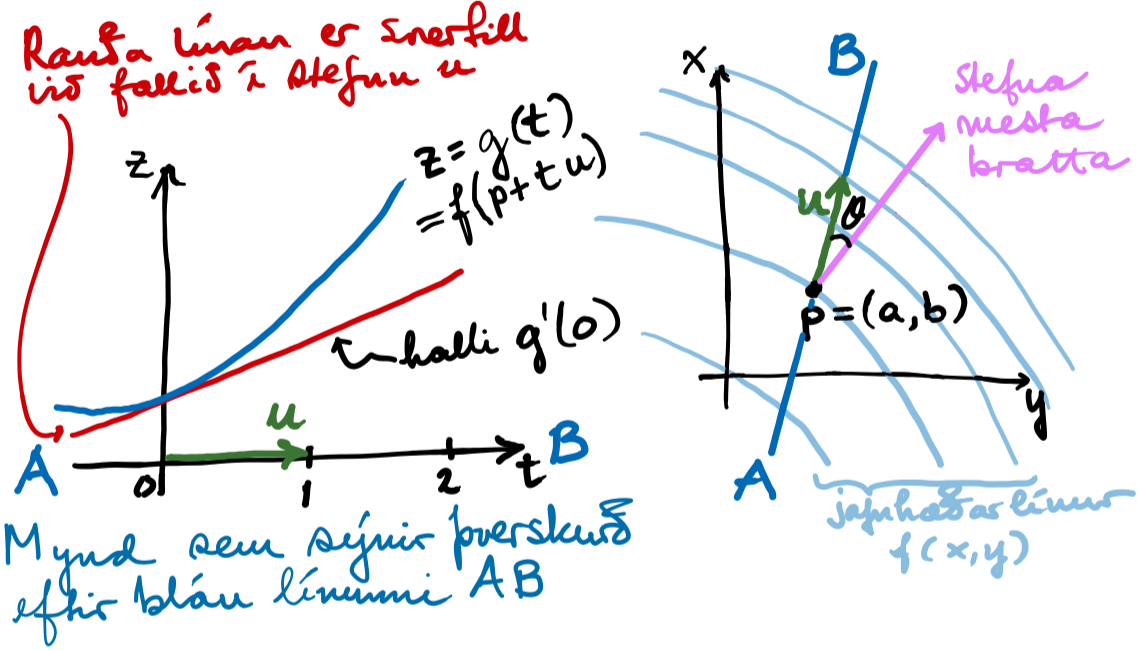 Rauða línan er snertill
við fallið í stefnu u
z
z = g(t)
= f(p + t u)
halli g'(0)
u
A
0
1
2
t
B
Mynd sem sýnir þverskurð
eftir bláu línunni AB
x
B
stefna
mesta
bratta
u
θ
p = (a, b)
y
A
jafnhæðarlínur
f(x, y)